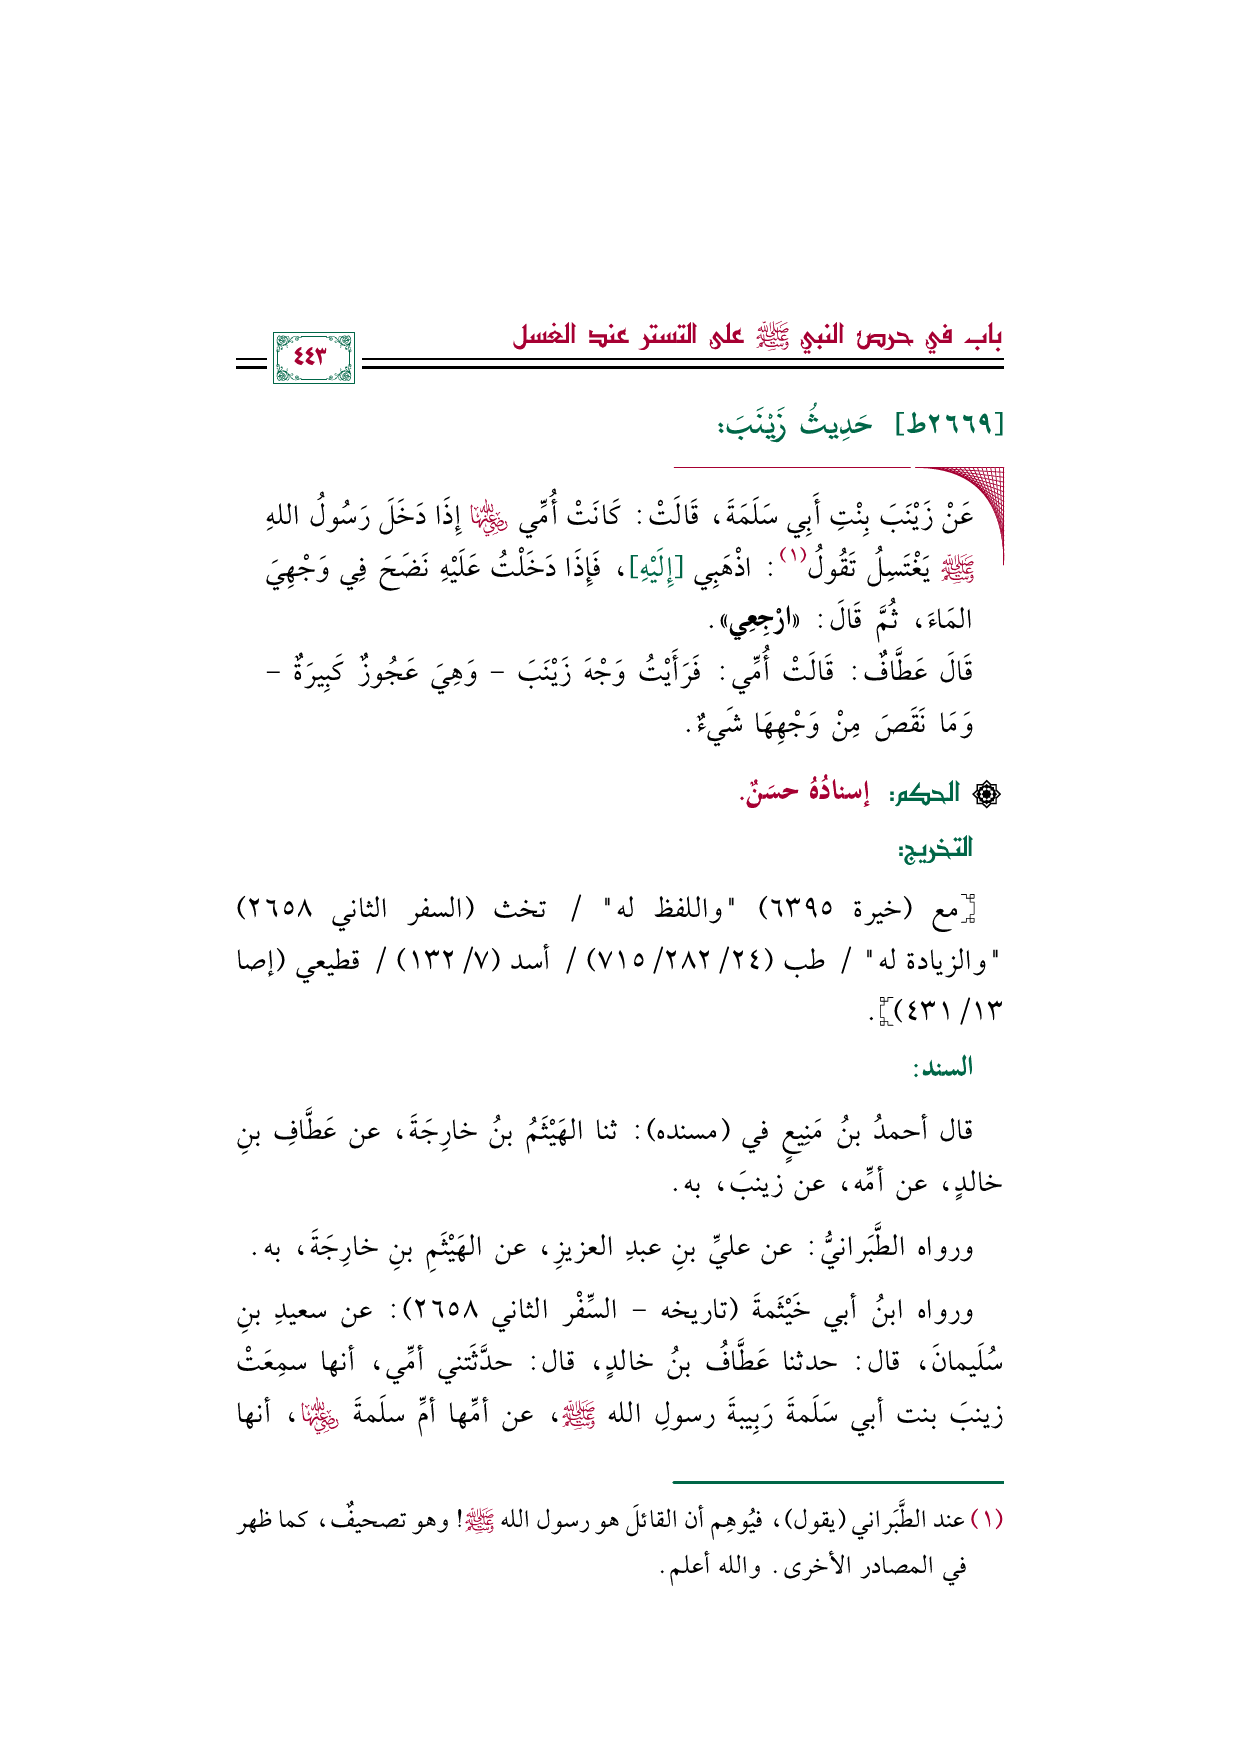 باب في حرص النبي ﷺ على التستر عند الغسل
٤٤٣
[٢٦٦٩ط] حَدِيثُ زَيْنَبَ:
عَنْ زَيْنَبَ بِنْتِ أَبِي سَلَمَةَ، قَالَتْ: كَانَتْ أُمِّي رضي الله عنها إِذَا دَخَلَ رَسُولُ اللهِ
ﷺ يَغْتَسِلُ تَقُولُ(١): اذْهَبِي [إِلَيْهِ]، فَإِذَا دَخَلْتُ عَلَيْهِ نَضَحَ فِي وَجْهِيَ
المَاءَ، ثُمَّ قَالَ: «ارْجِعِي».
قَالَ عَطَّافٌ: قَالَتْ أُمِّي: فَرَأَيْتُ وَجْهَ زَيْنَبَ – وَهِيَ عَجُوزٌ كَبِيرَةٌ –
وَمَا نَقَصَ مِنْ وَجْهِهَا شَيءٌ.
الحكم: إسنادُهُ حسَنٌ.
التخريج:
[مع (خيرة ٦٣٩٥) "واللفظ له" / تخث (السفر الثاني ٢٦٥٨)
"والزيادة له" / طب (٢٤/ ٢٨٢/ ٧١٥) / أسد (٧/ ١٣٢) / قطيعي (إصا
١٣/ ٤٣١)].
السند:
قال أحمدُ بنُ مَنِيعٍ في (مسنده): ثنا الهَيْثَمُ بنُ خارِجَةَ، عن عَطَّافِ بنِ
خالدٍ، عن أمِّه، عن زينبَ، به.
ورواه الطَّبَرانيُّ: عن عليِّ بنِ عبدِ العزيزِ، عن الهَيْثَمِ بنِ خارِجَةَ، به.
ورواه ابنُ أبي خَيْثَمةَ (تاريخه – السِّفْر الثاني ٢٦٥٨): عن سعيدِ بنِ
سُلَيمانَ، قال: حدثنا عَطَّافُ بنُ خالدٍ، قال: حدَّثَتني أمِّي، أنها سمِعَتْ
زينبَ بنت أبي سَلَمةَ رَبِيبةَ رسولِ الله ﷺ، عن أمِّها أمِّ سلَمةَ رضي الله عنها، أنها
(١) عند الطَّبَراني (يقول)، فيُوهِم أن القائلَ هو رسول الله ﷺ! وهو تصحيفٌ، كما ظهر
في المصادر الأخرى. والله أعلم.